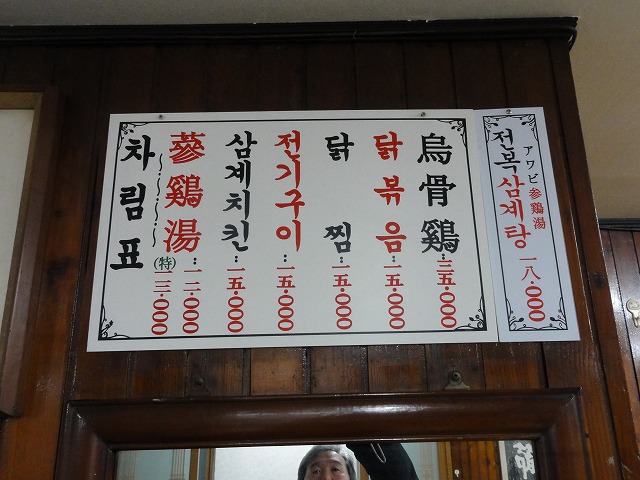 차림표
蔘鷄湯:一二·000
(特)一三·000
삼계치킨:一五·000
전기구이:一五·000
닭 찜:一五·000
닭볶음:一五·000
烏骨鷄:三五·000
アワビ参鶏湯
전복삼계탕 一八·000